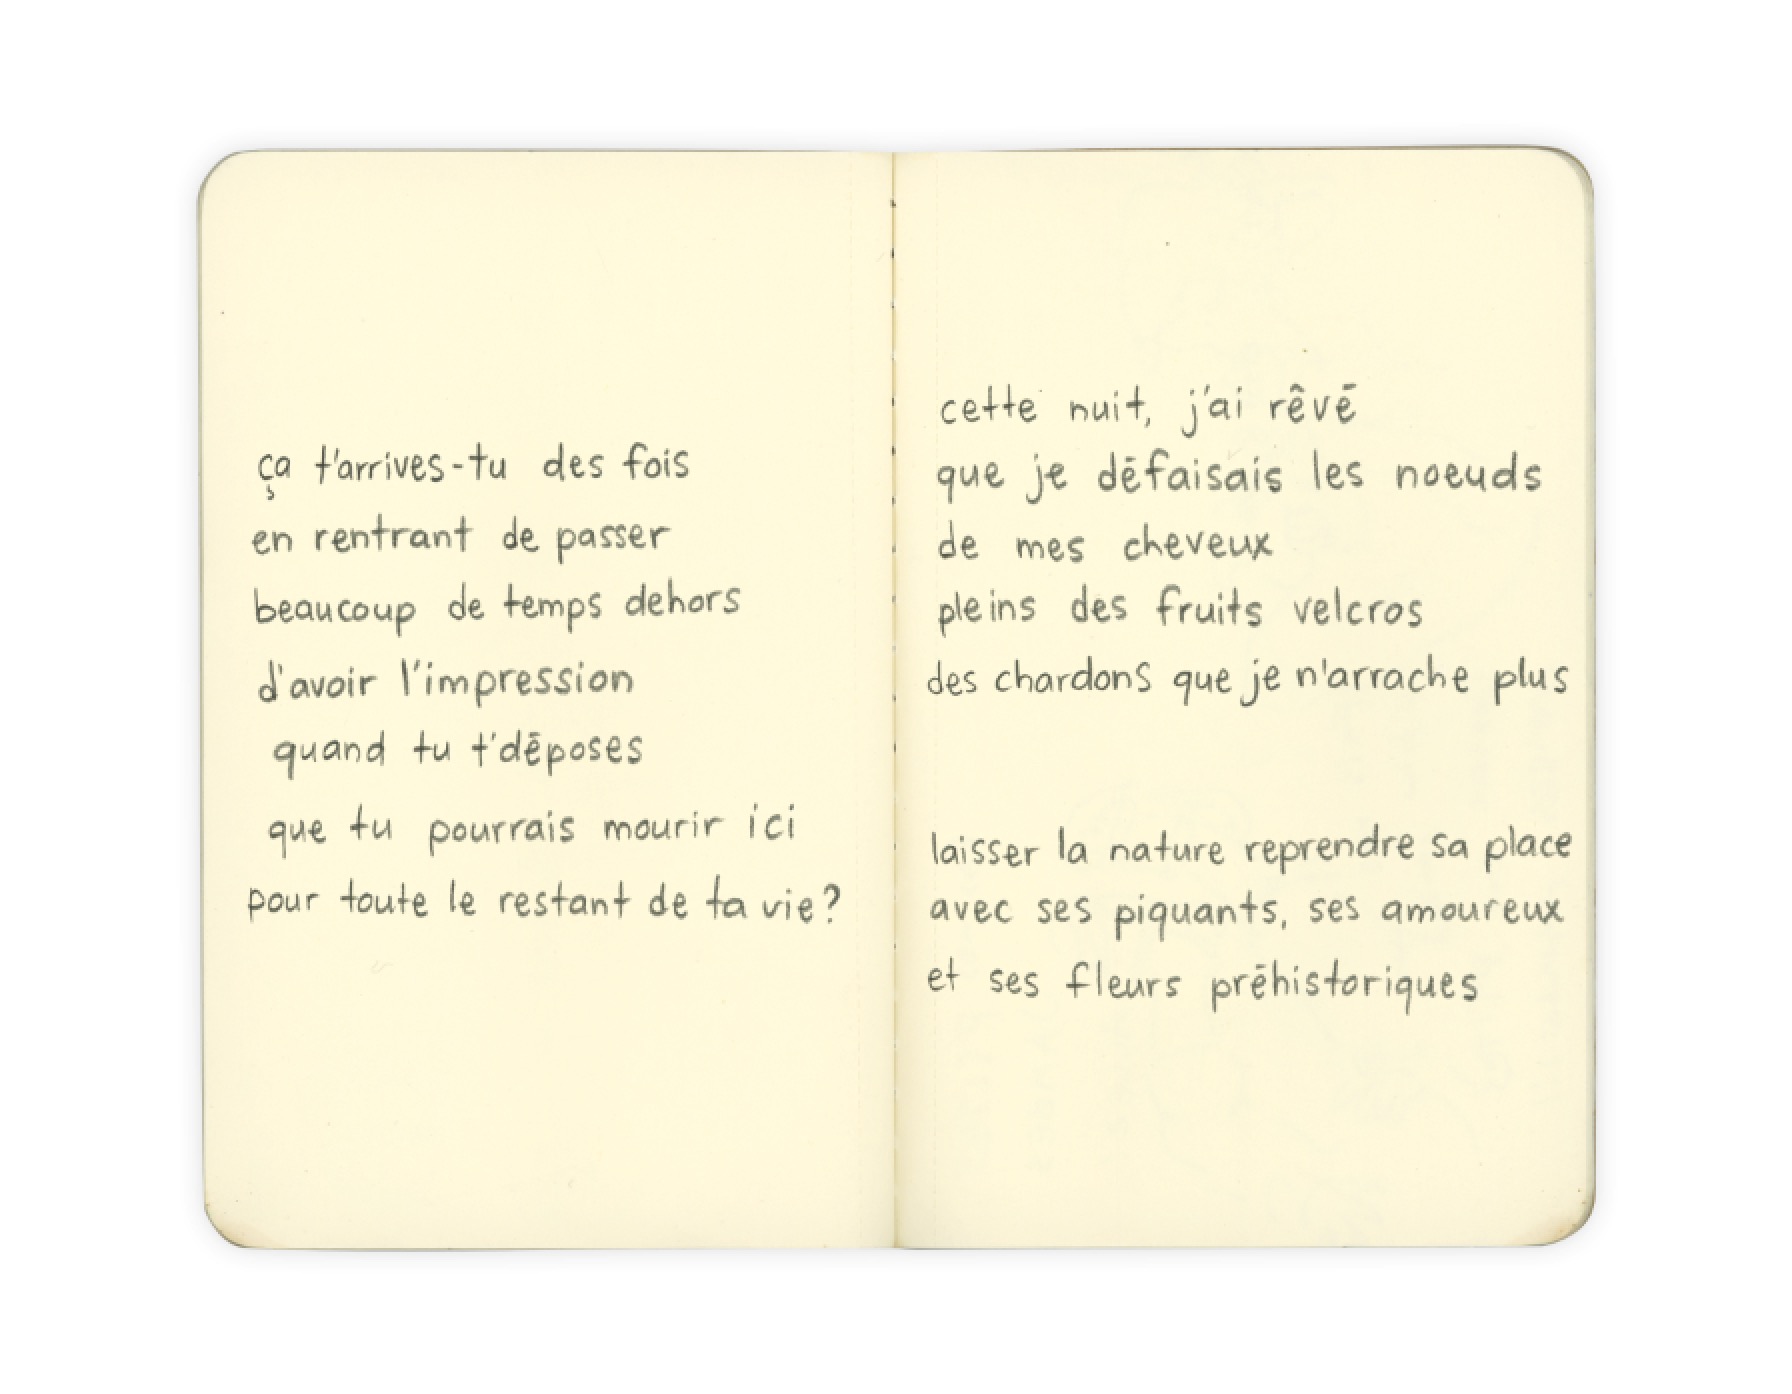 ça t'arrives-tu des fois
en rentrant de passer
beaucoup de temps dehors
d'avoir l'impression
quand tu t'déposes
que tu pourrais mourir ici
pour toute le restant de ta vie?
cette nuit, j'ai rêvé
que je défaisais les noeuds
de mes cheveux
pleins des fruits velcros
des chardons que je n'arrache plus
laisser la nature reprendre sa place
avec ses piquants, ses amoureux
et ses fleurs préhistoriques